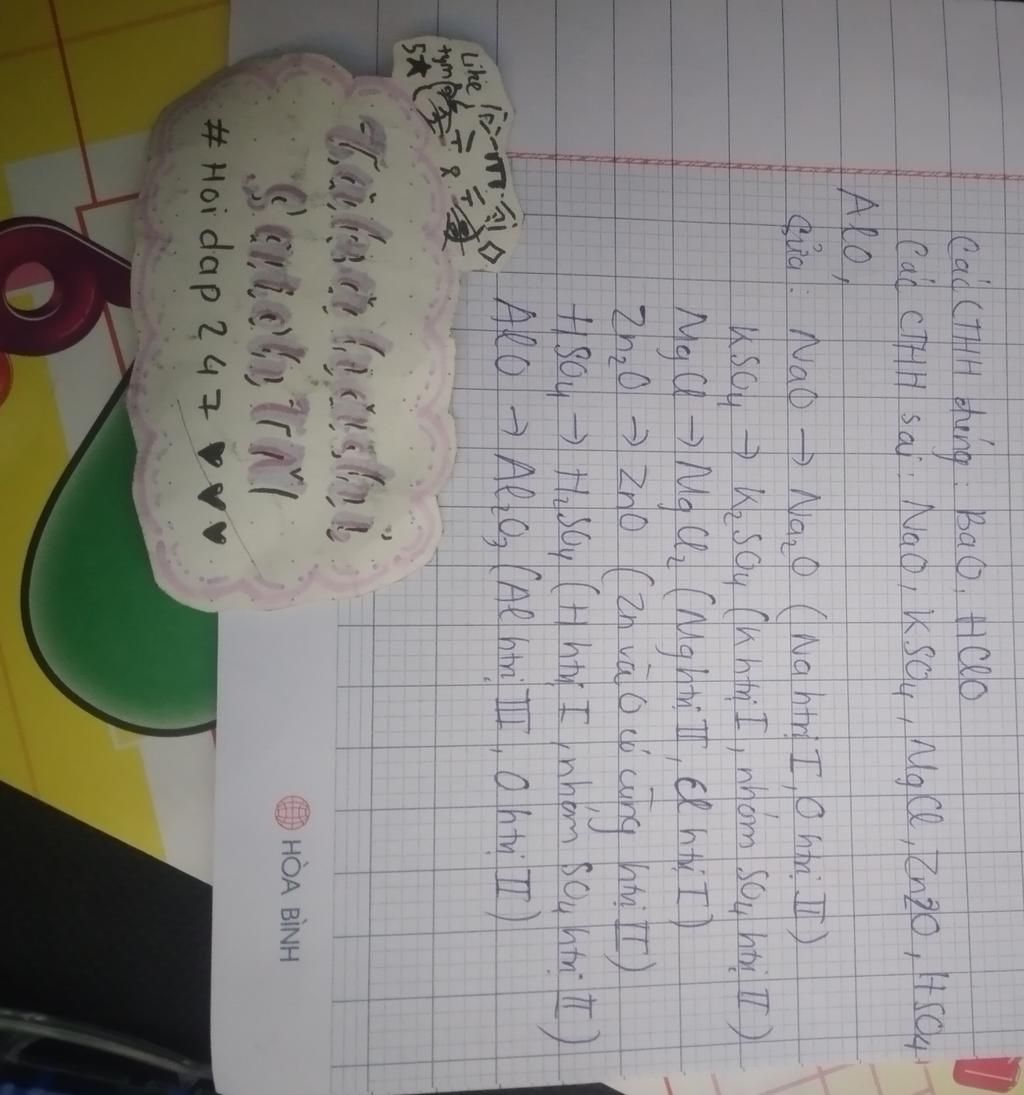 Các CTHH đúng: BaO, HClO
Các CTHH sai: NaO, KSO₄, MgCl, Zn2O, HSO₄,
AlO,
Sửa: NaO → Na₂O (Na htrị I, O htrị II)
KSO₄ → K₂SO₄ (K htrị I, nhóm SO₄ htrị II)
MgCl → MgCl₂ (Mg htrị II, Cl htrị I)
Zn₂O → ZnO (Zn và O có cùng htrị II)
HSO₄ → H₂SO₄ (H htrị I, nhóm SO₄ htrị II)
AlO → Al₂O₃ (Al htrị III, O htrị II)
Like
tym
5★
#Hoidap247 ♥♥♥
HÒA BÌNH